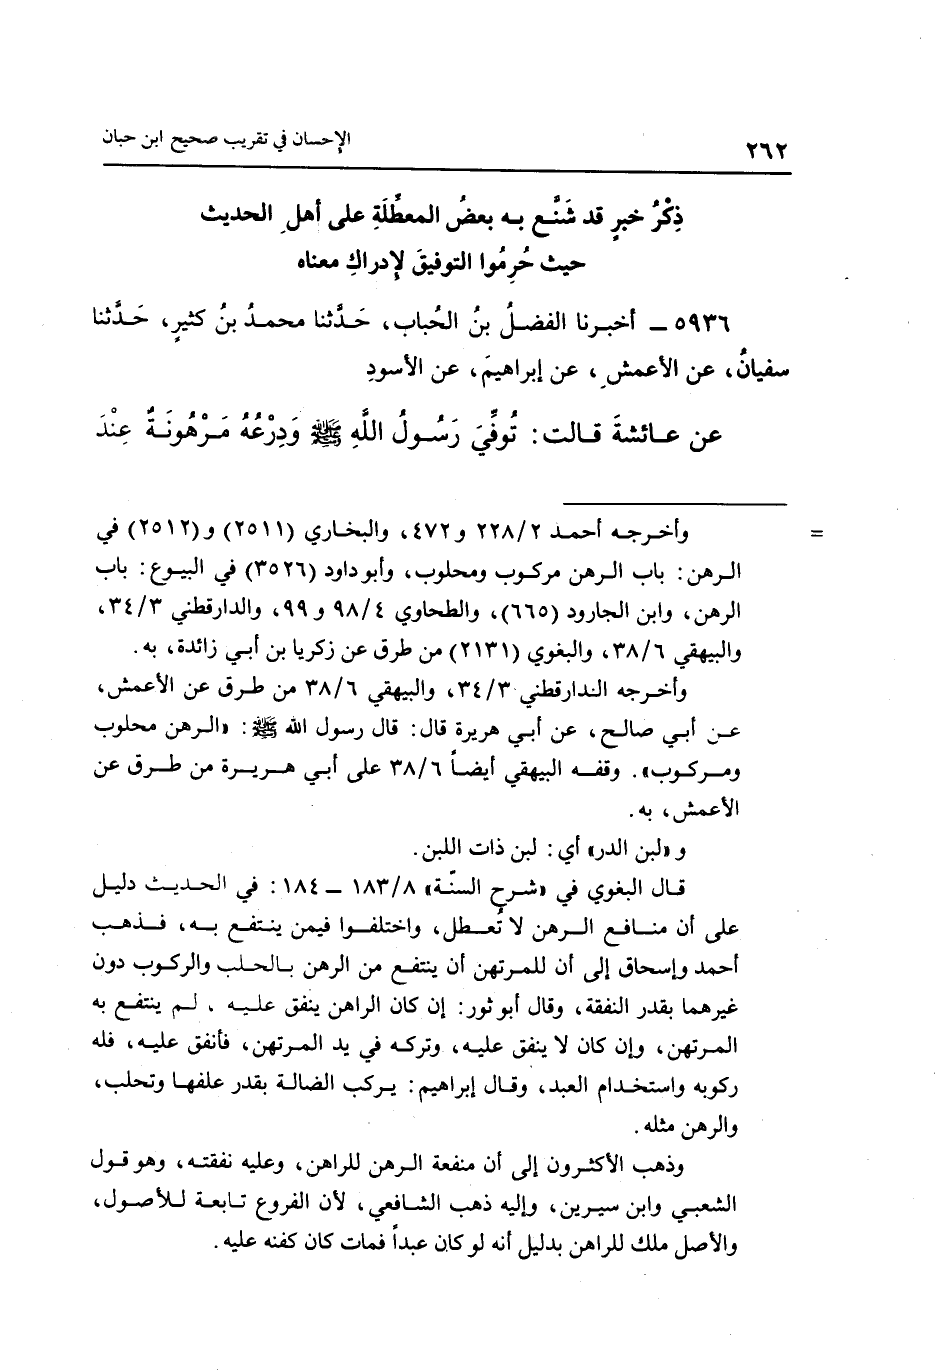 ٢٦٢ الإحسان في تقريب صحيح ابن حبان
ذِكْرُ خبرٍ قد شَنَّع به بعضُ المعطِّلَةِ على أهلِ الحديث
حيث حُرِمُوا التوفيقَ لإدراكِ معناه
٥٩٣٦ ــ أخبرنا الفضلُ بنُ الحُباب، حَدَّثنا محمدُ بنُ كثيرٍ، حَدَّثنا
سفيانُ، عن الأعمشِ، عن إبراهيمَ، عن الأسودِ
عن عائشةَ قالت: تُوفِّيَ رَسُولُ اللَّهِ ﷺ وَدِرْعُهُ مَرْهُونَةٌ عِنْدَ
= وأخرجه أحمد ٢٢٨/٢ و ٤٧٢، والبخاري (٢٥١١) و(٢٥١٢) في
الرهن: باب الرهن مركوب ومحلوب، وأبو داود (٣٥٢٦) في البيوع: باب
الرهن، وابن الجارود (٦٦٥)، والطحاوي ٩٨/٤ و ٩٩، والدارقطني ٣٤/٣،
والبيهقي ٣٨/٦، والبغوي (٢١٣١) من طرق عن زكريا بن أبي زائدة، به.
وأخرجه الدارقطني ٣٤/٣، والبيهقي ٣٨/٦ من طرق عن الأعمش،
عن أبي صالح، عن أبي هريرة قال: قال رسول الله ﷺ: «الرهن محلوب
ومركوب». وقفه البيهقي أيضاً ٣٨/٦ على أبي هريرة من طرق عن
الأعمش، به.
و «لبن الدر» أي: لبن ذات اللبن.
قال البغوي في «شرح السنّة» ١٨٣/٨ ــ ١٨٤: في الحديث دليل
على أن منافع الرهن لا تُعطل، واختلفوا فيمن ينتفع به، فذهب
أحمد وإسحاق إلى أن للمرتهن أن ينتفع من الرهن بالحلب والركوب دون
غيرهما بقدر النفقة، وقال أبو ثور: إن كان الراهن ينفق عليه، لم ينتفع به
المرتهن، وإن كان لا ينفق عليه، وتركه في يد المرتهن، فأنفق عليه، فله
ركوبه واستخدام العبد، وقال إبراهيم: يركب الضالة بقدر علفها وتحلب،
والرهن مثله.
وذهب الأكثرون إلى أن منفعة الرهن للراهن، وعليه نفقته، وهو قول
الشعبي وابن سيرين، وإليه ذهب الشافعي، لأن الفروع تابعة للأصول،
والأصل ملك للراهن بدليل أنه لو كان عبداً فمات كان كفنه عليه.